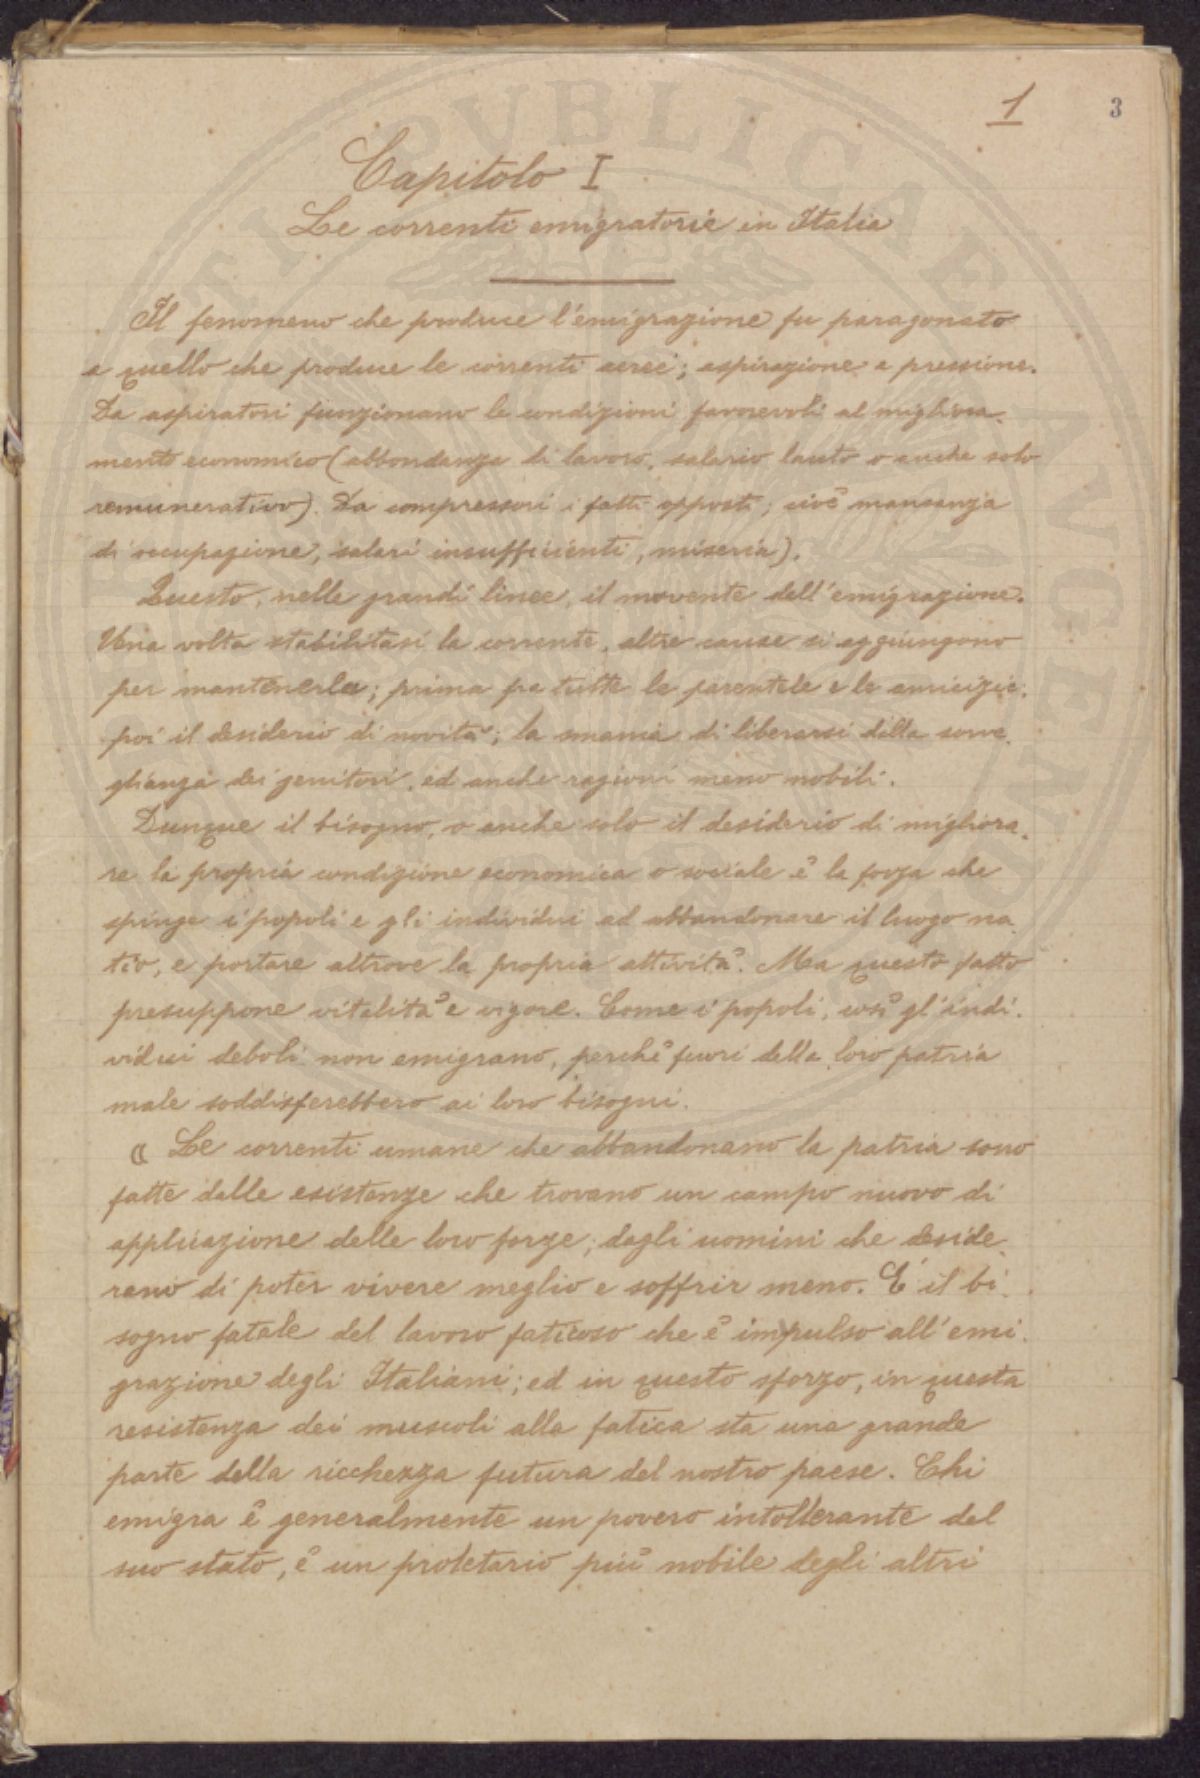 1
3
Capitolo I
Le correnti emigratorie in Italia
Il fenomeno che produce l'emigrazione fu paragonato
a quello che produce le correnti aeree; aspirazione e pressione.
Da aspiratori funzionano le condizioni favorevoli al migliora-
mento economico (abbondanza di lavoro, salario lauto o anche solo
remunerativo). Da compressori i fatti opposti; cioè mancanza
di occupazione, salari insufficienti, miseria).
Questo, nelle grandi linee, il movente dell'emigrazione.
Una volta stabilitasi la corrente, altre cause si aggiungono
per mantenerla; prima fra tutte le parentele e le amicizie;
poi il desiderio di novità; la smania di liberarsi dalla sorve-
glianza dei genitori, ed anche ragioni meno nobili.
Dunque il bisogno, o anche solo il desiderio di migliora-
re la propria condizione economica o sociale è la forza che
spinge i popoli e gli individui ad abbandonare il luogo na-
tio, e portare altrove la propria attività. Ma questo fatto
presuppone vitalità e vigore. Come i popoli, così gl'indi-
vidui deboli non emigrano, perchè fuori della loro patria
male soddisferebbero ai loro bisogni.
« Le correnti umane che abbandonano la patria sono
fatte dalle esistenze che trovano un campo nuovo di
applicazione delle loro forze; dagli uomini che deside-
rano di poter vivere meglio e soffrir meno. È il bi-
sogno fatale del lavoro faticoso che è impulso all'emi-
grazione degli Italiani; ed in questo sforzo, in questa
resistenza dei muscoli alla fatica sta una grande
parte della ricchezza futura del nostro paese. Chi
emigra è generalmente un povero intollerante del
suo stato, è un proletario più nobile degli altri
PUBLICAE AUGENDO